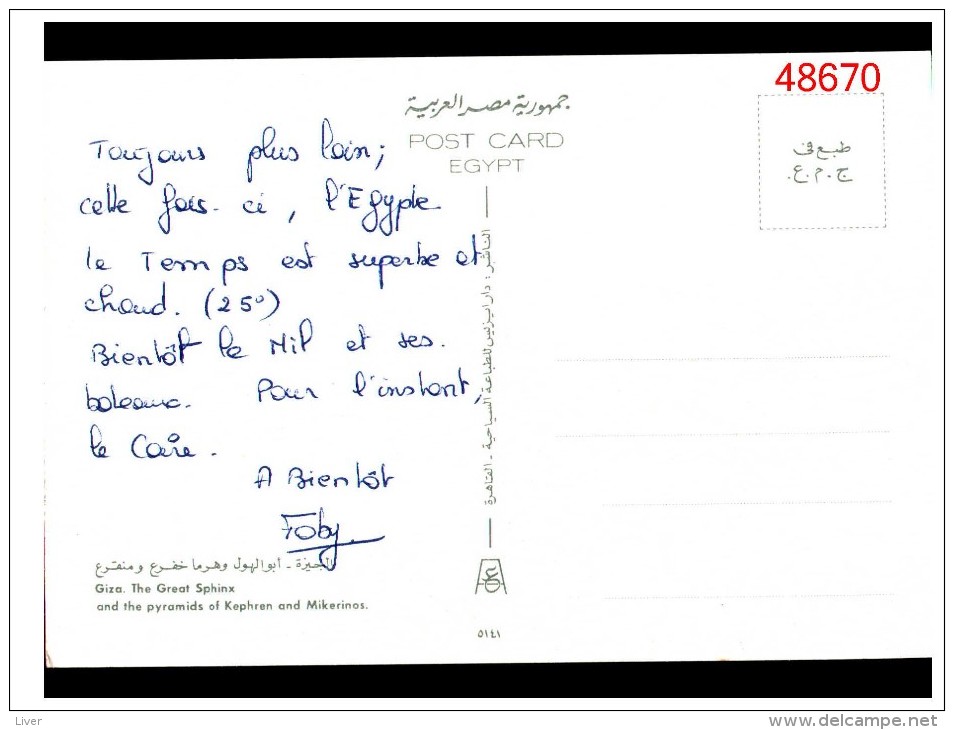 48670
جمهورية مصر العربية
POST CARD
EGYPT
طبع في
ج.م.ع.
Toujours plus loin ;
cette fois-ci , l'Egypte
le Temps est superbe et
chaud. (25°)
Bientôt le Nil et ses.
bateaux. Pour l'instant,
le Caire.
A Bientôt
Toby
الناشر : دار ايريس للطباعة السياحية - القاهرة
الجيزة - أبو الهول وهرما خفرع ومنقرع
Giza. The Great Sphinx
and the pyramids of Kephren and Mikerinos.
٥١٤١
Liver
www.delcampe.net